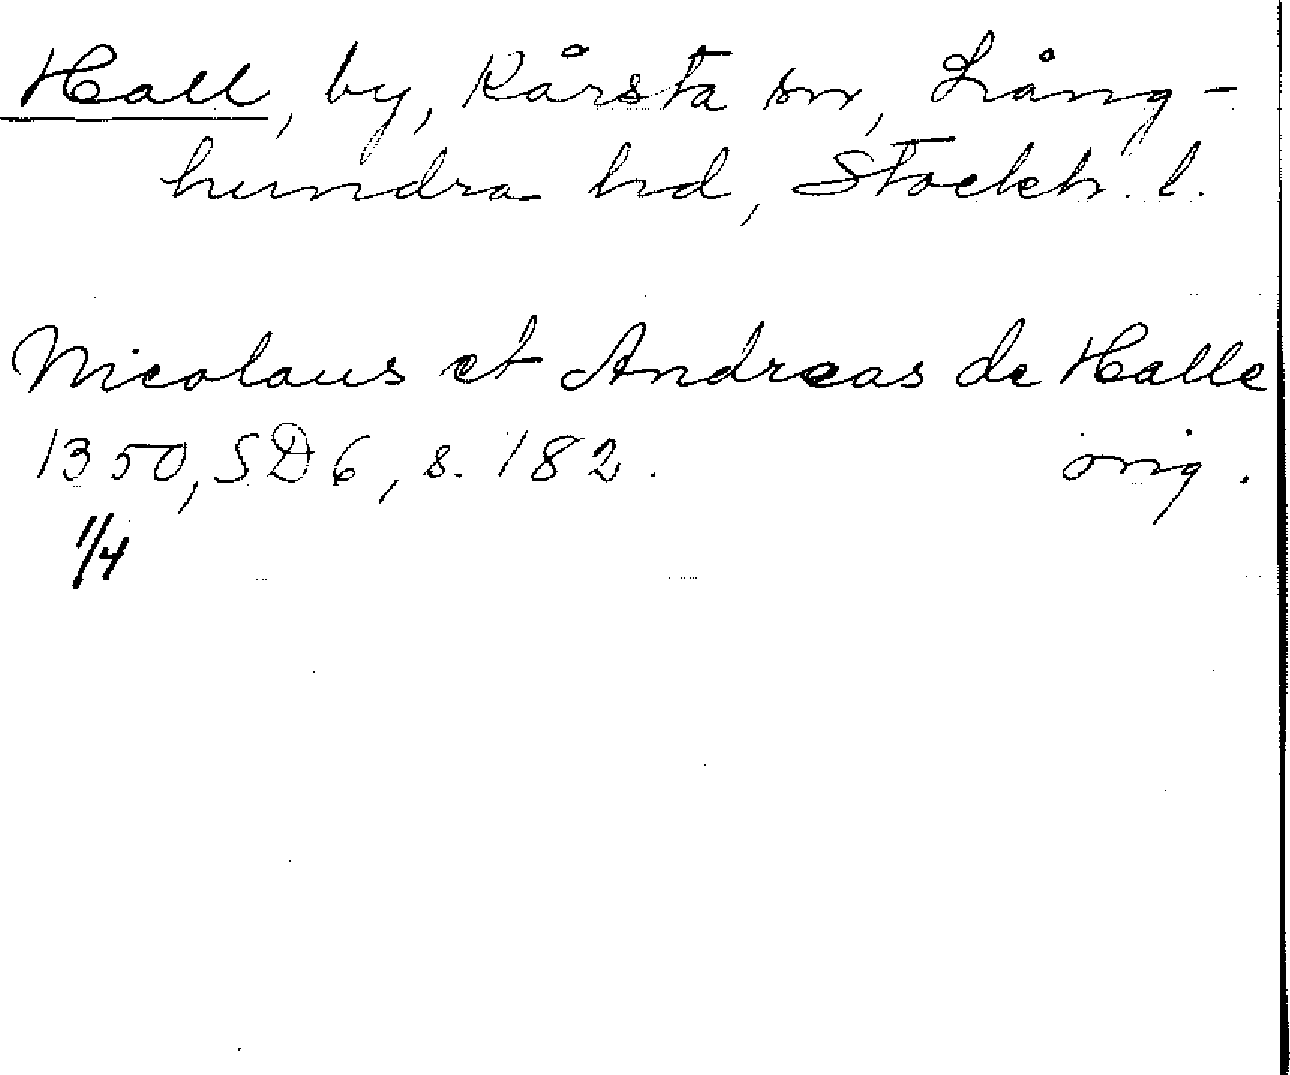 Hall, by, Kårsta sn, Lång-
hundra hd, Stockh. l.
Nicolaus et Andreas de Halle
1350, SD 6, s. 182. orig.
1/4